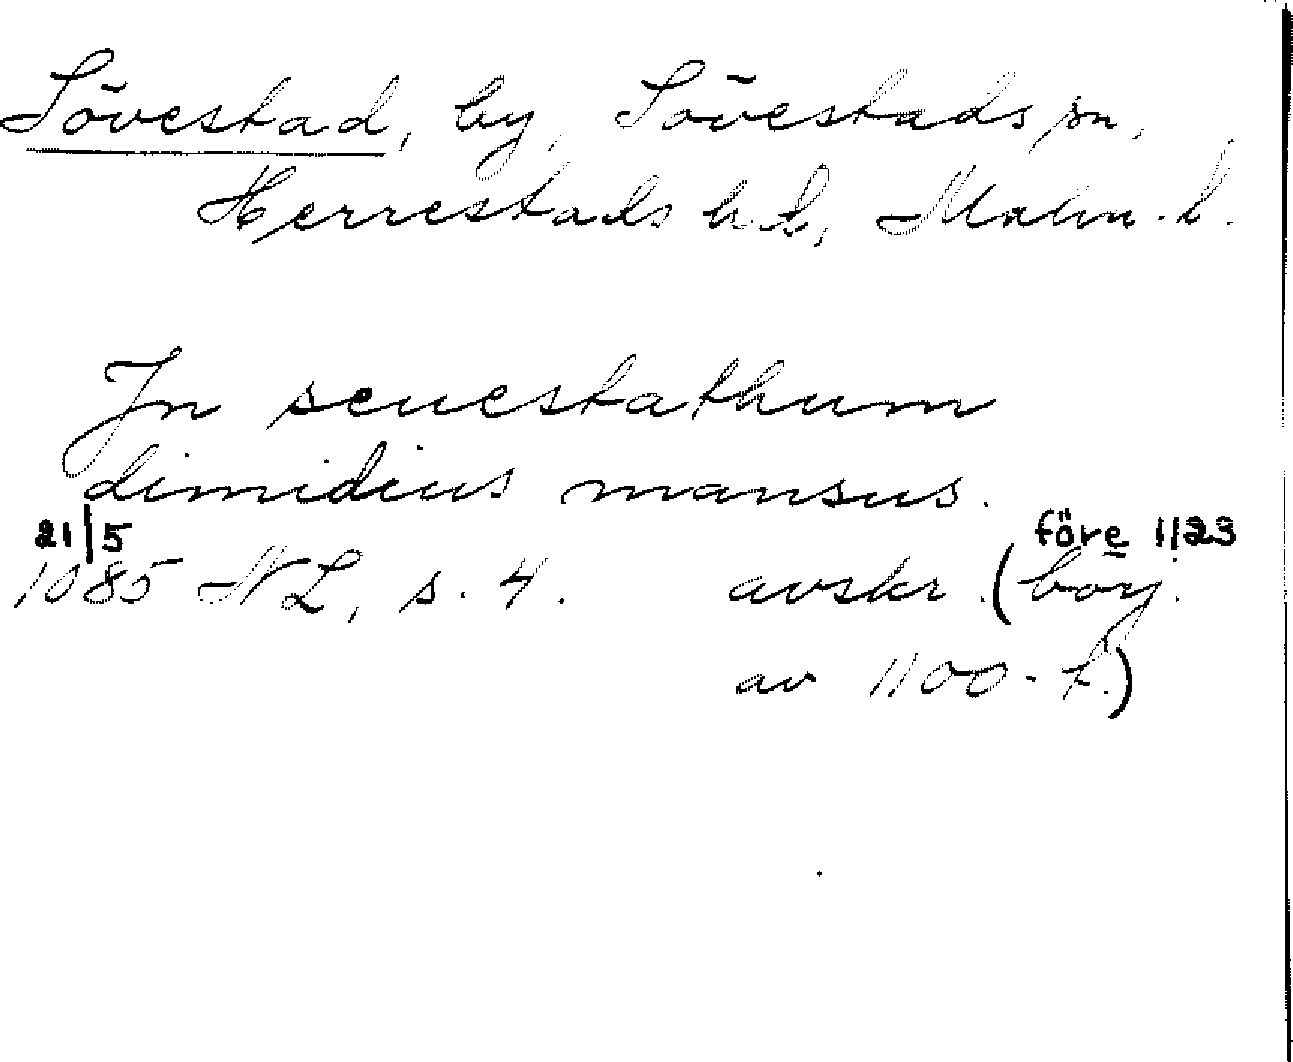 Sövestad, by, Sövestads sn,
Herrestads hd, Malm. l.
Jn seuestathum
dimidius mansus.
21/5 före 1123
1085 NL, s. 4. avskr. (börj.
av 1100-t.)